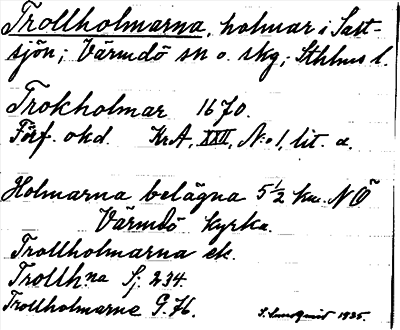 Trollholmarna, holmar i Salt-
sjön; Värmdö sn o. skg; Sthlms l.
Trokholmar 1670.
Förf. okd. KrA, XXII, N:o 1, lit. a.
Holmarna belägna 5 1/2 km. NÖ
Värmdö kyrka.
Trollholmarna ek.
Trollh:na Sj. 234.
Trollholmarne G. 76.
S. Lundquist 1935.